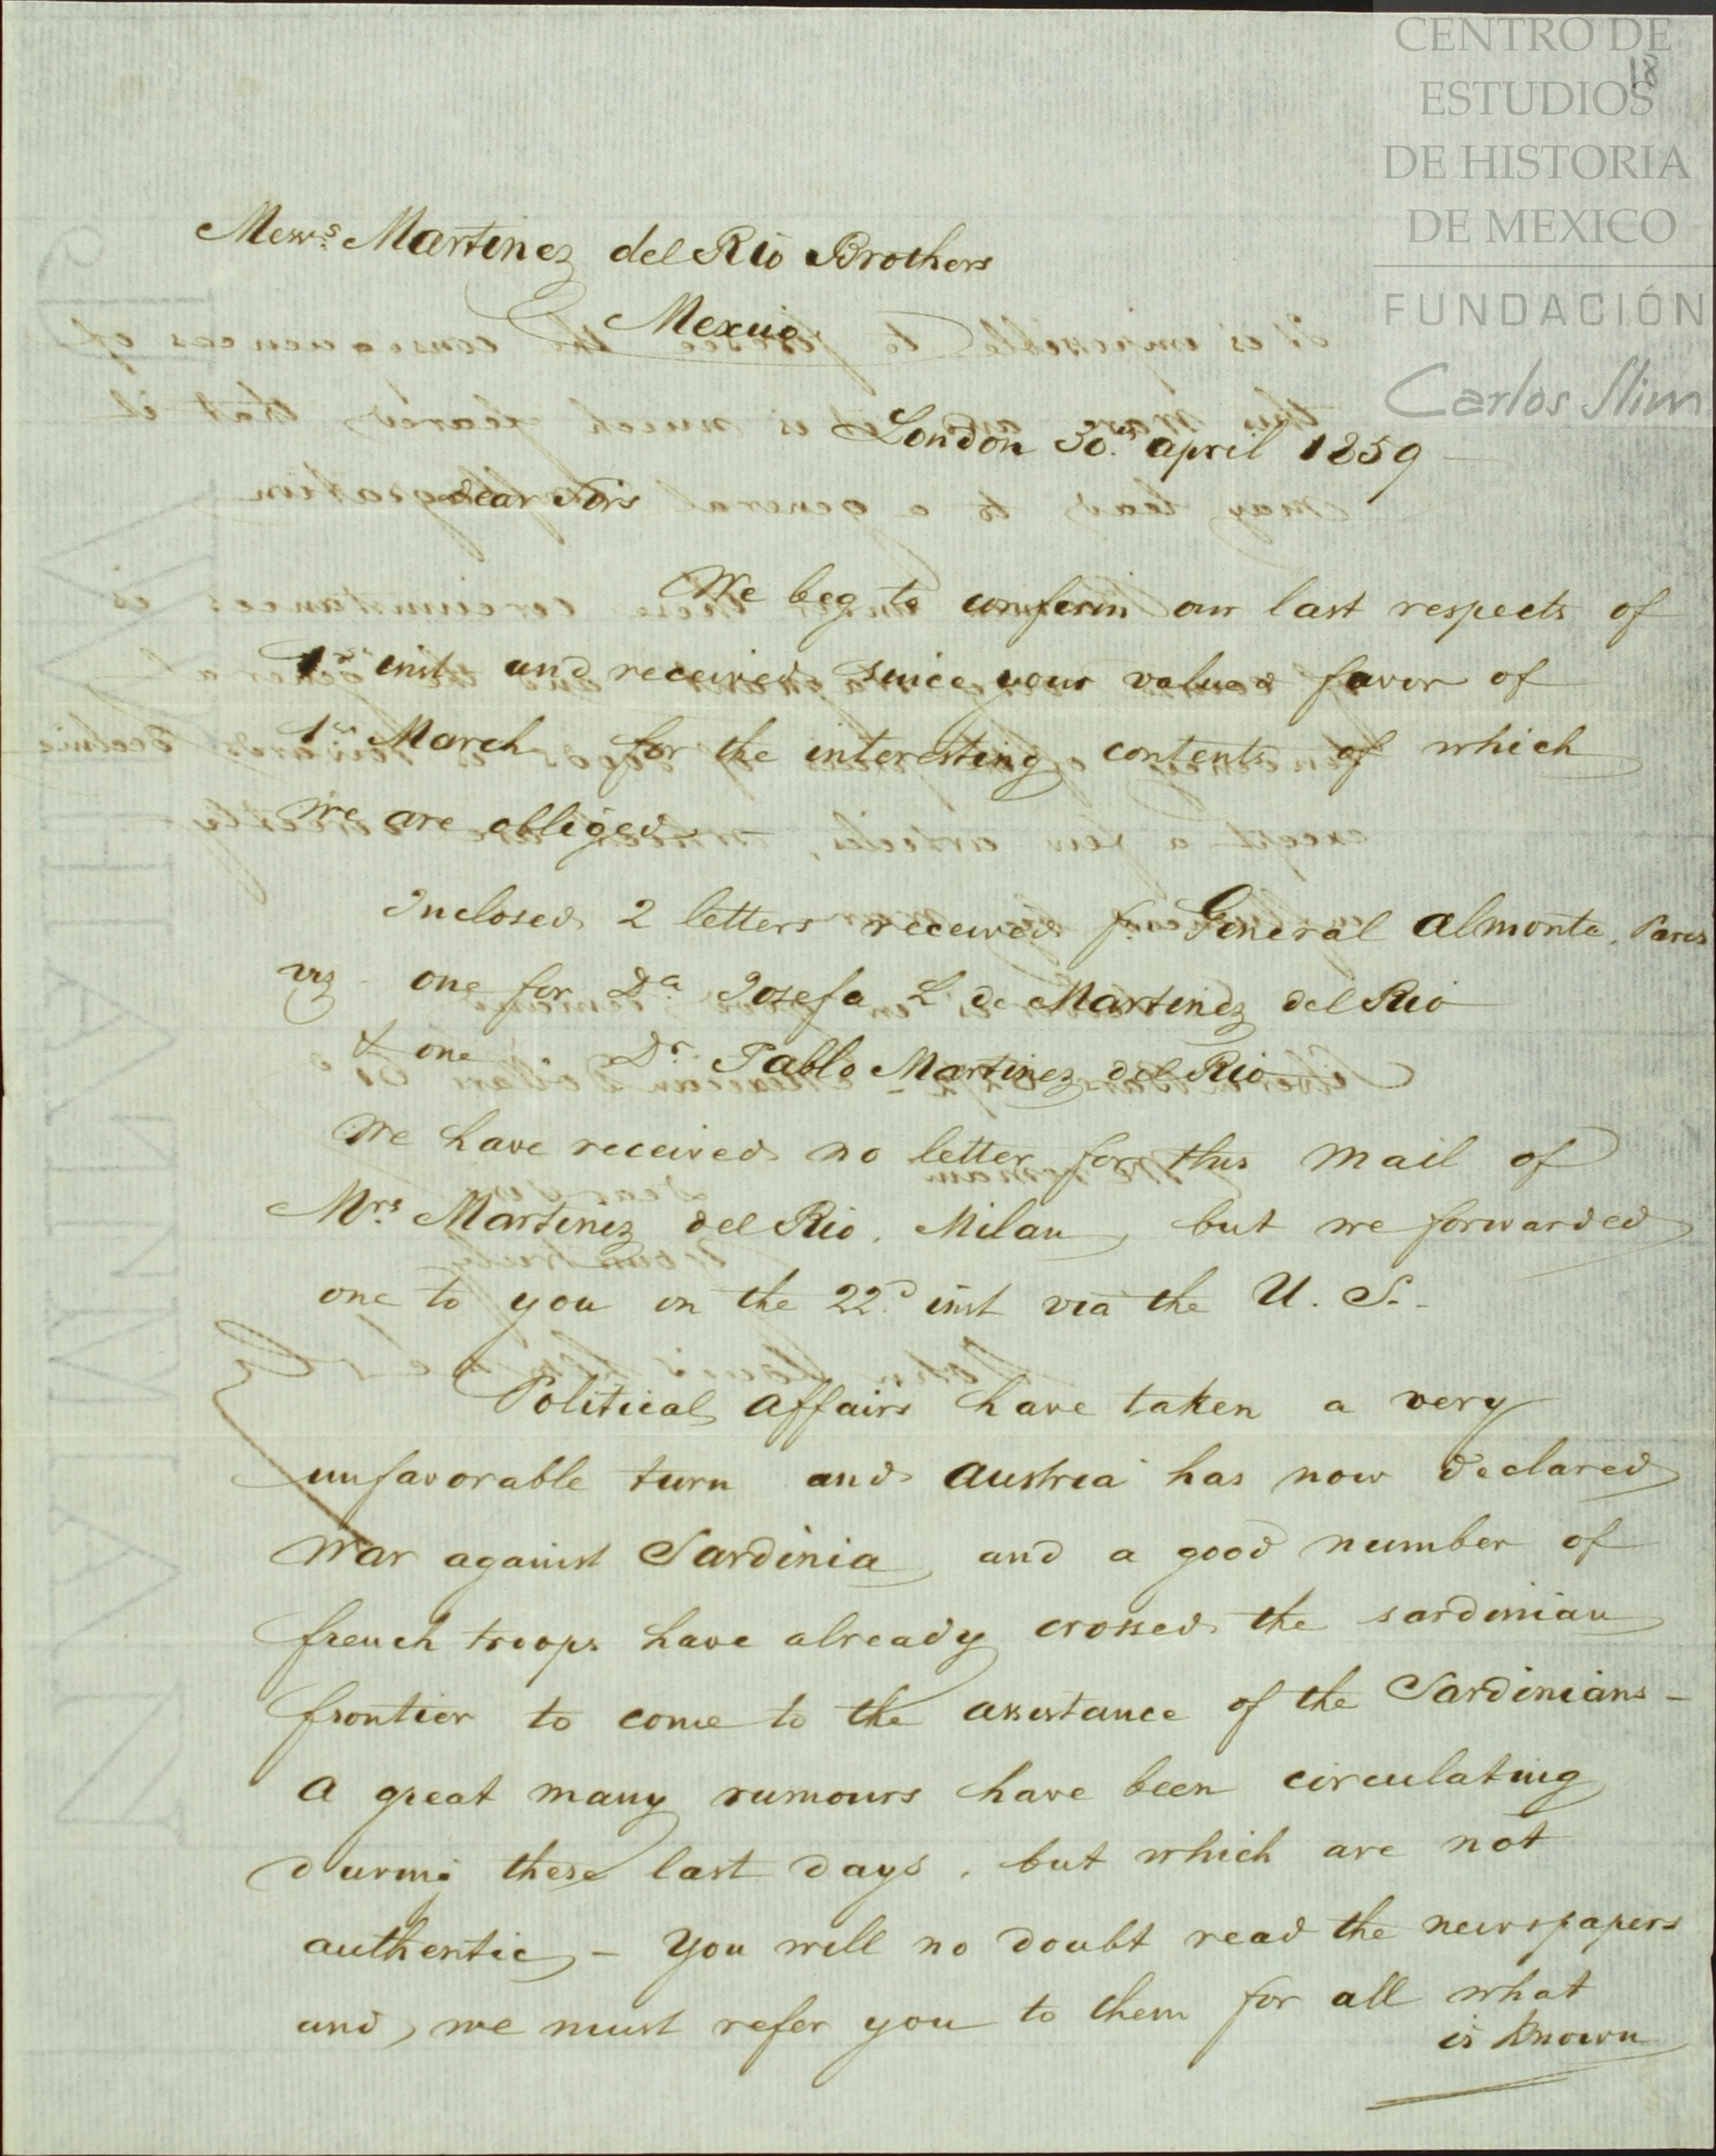 CENTRO DE
ESTUDIOS
DE HISTORIA
DE MEXICO
FUNDACIÓN
Carlos Slim
18
Messrs Martinez del Rio Brothers
Mexico
London 30th april 1859
Dear Sirs
We beg to confirm our last respects of
1st inst and received since your valued favor of
1st March for the interesting contents of which
we are obliged
Inclosed 2 letters received f. General Almonte, Paris
viz one for Da Josefa L de Martinez del Rio
& one Dr Pablo Martinez del Rio
We have received no letter for this mail of
Mrs Martinez del Rio, Milan, but we forwarded
one to you on the 22d inst via the U. S.-
Political affairs have taken a very
unfavorable turn and Austria has now declared
War against Sardinia and a good number of
french troops have already crossed the sardinian
frontier to come to the assistance of the Sardinians -
A great many rumours have been circulating
during these last days, but which are not
authentic, - You will no doubt read the newspapers
and, we must refer you to them for all what
is known